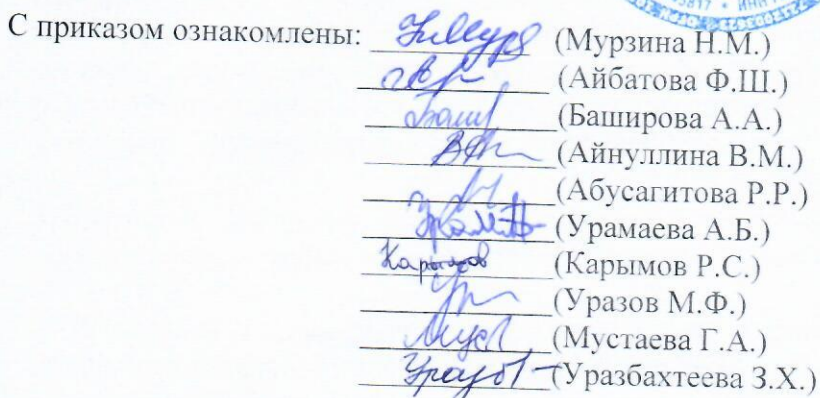 С приказом ознакомлены: (Мурзина Н.М.)
(Айбатова Ф.Ш.)
(Баширова А.А.)
(Айнуллина В.М.)
(Абусагитова Р.Р.)
(Урамаева А.Б.)
Карымов (Карымов Р.С.)
(Уразов М.Ф.)
(Мустаева Г.А.)
(Уразбахтеева З.Х.)